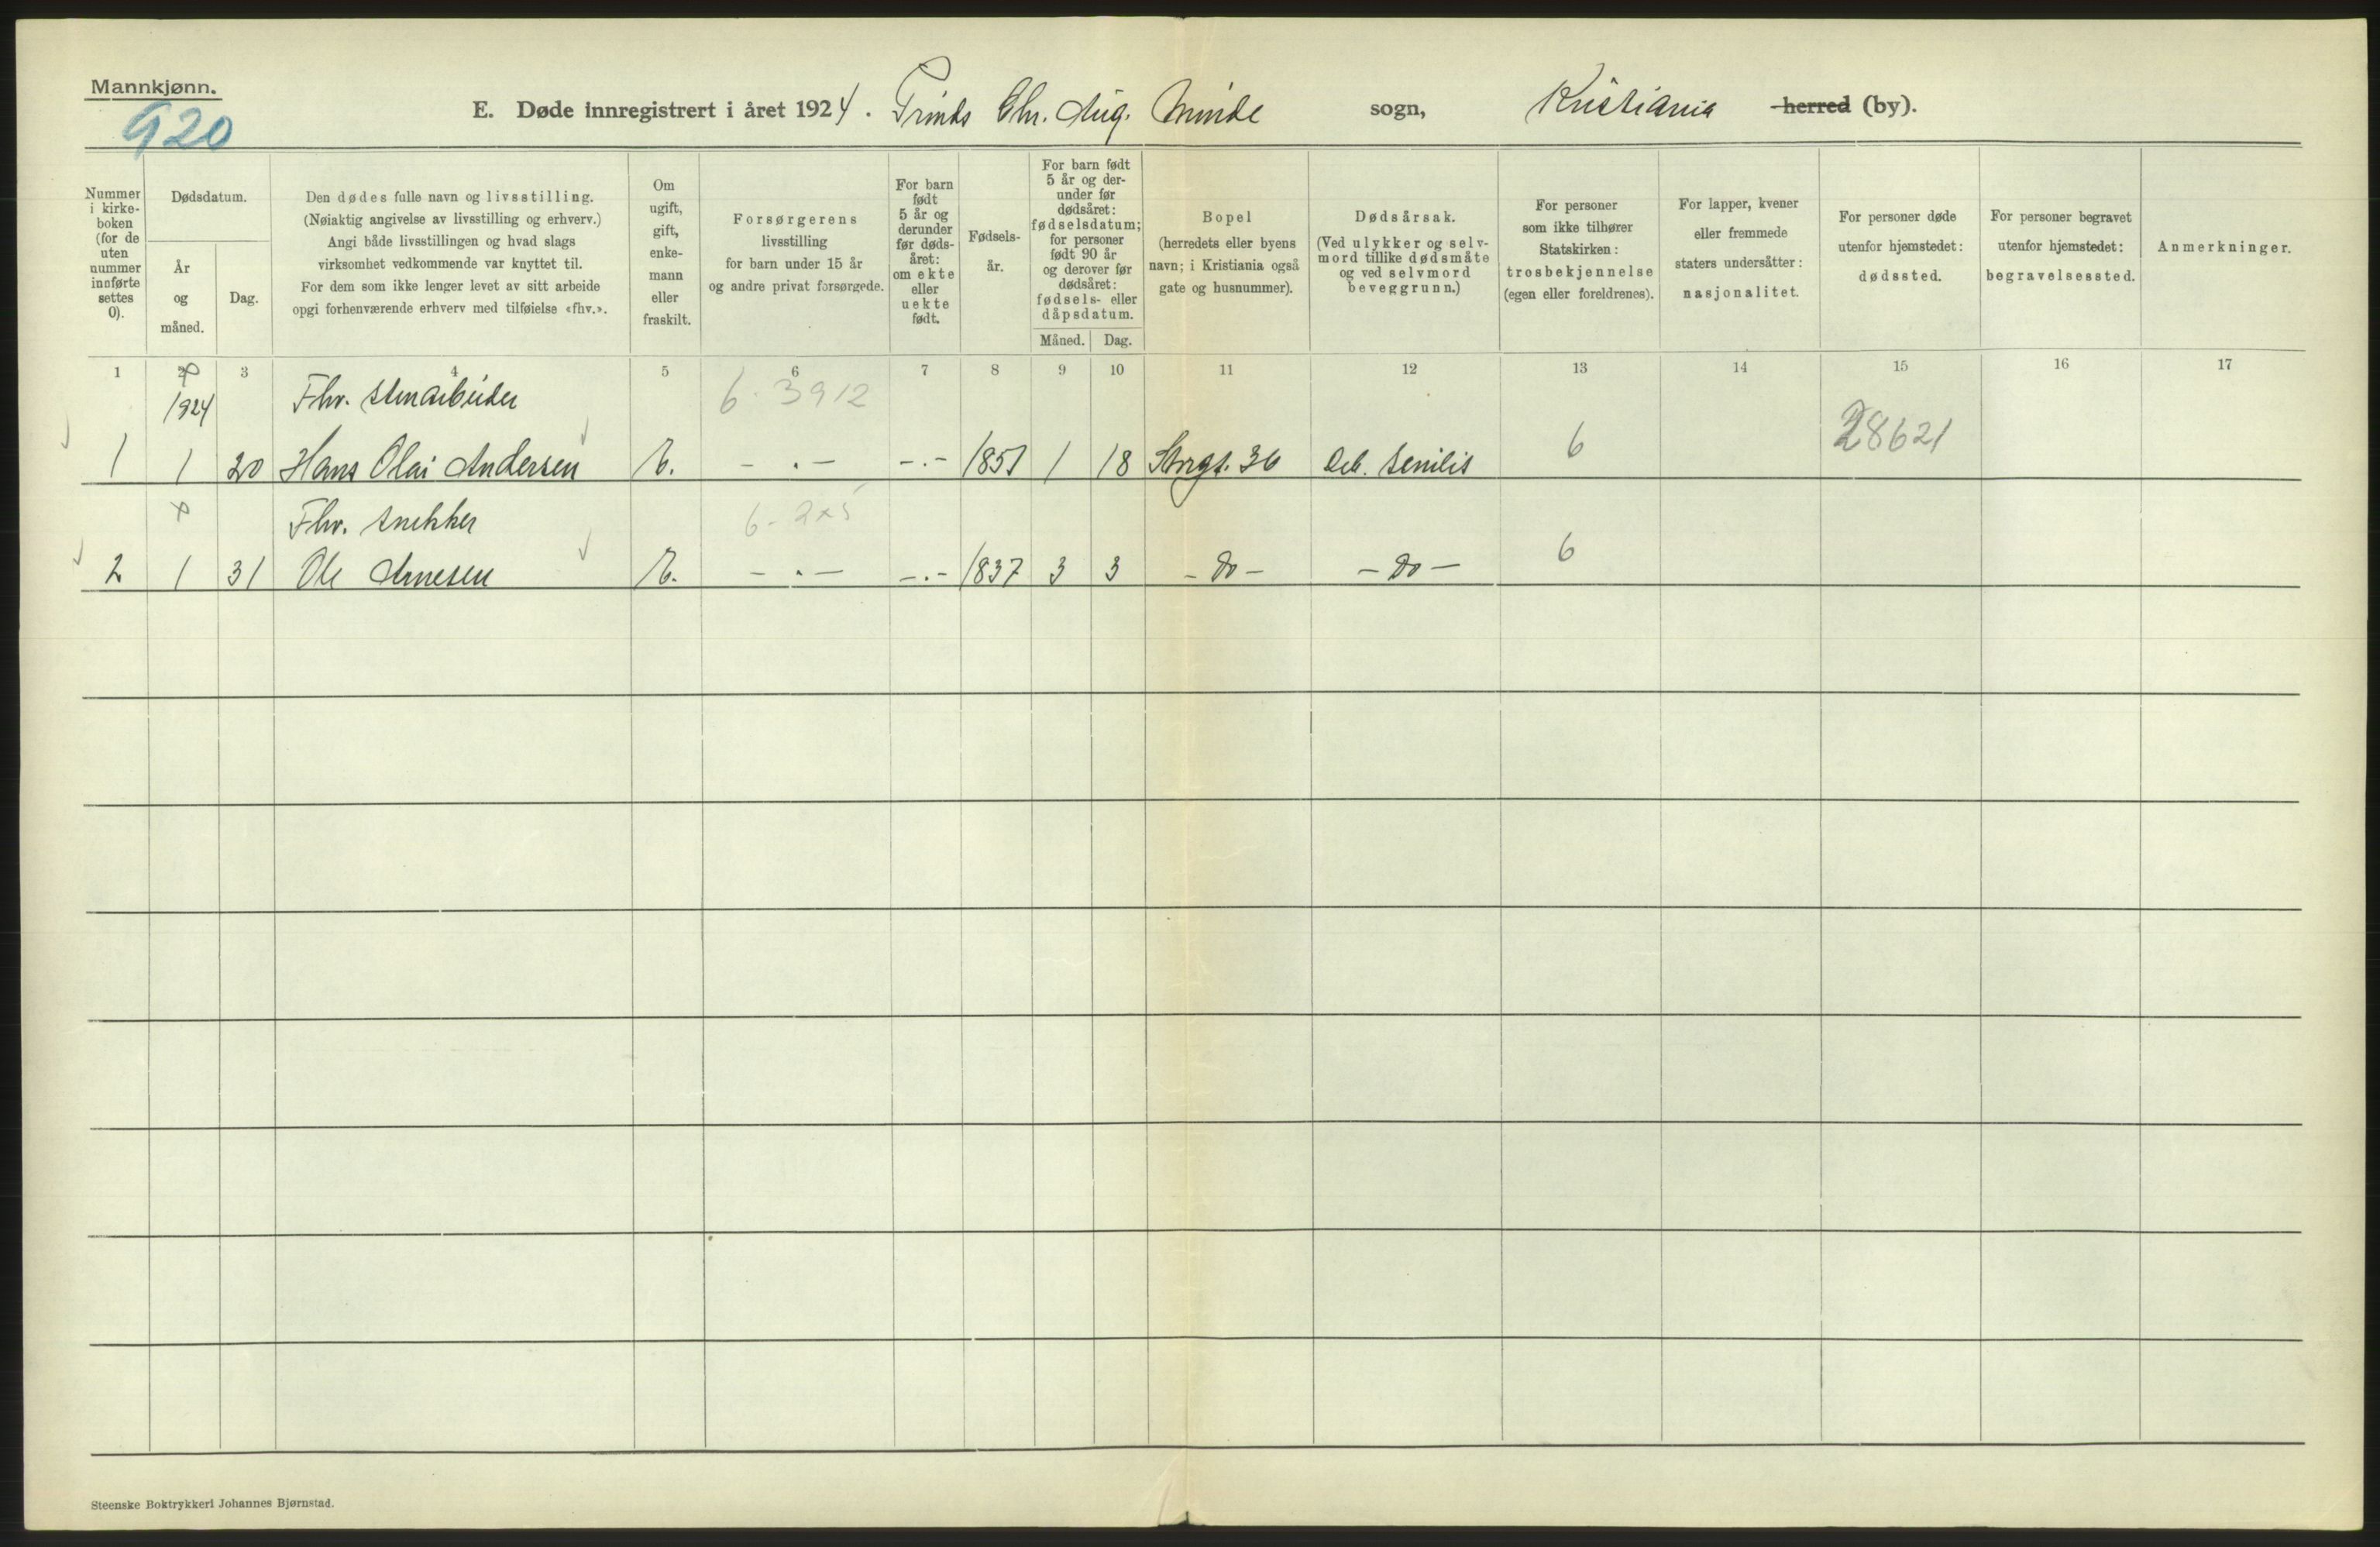 Mannkjønn.
920
E. Døde innregistrert i året 1924. Prinds Chr. Aug. Minde sogn, Kristiania herred (by).
Nummer i kirke-boken (for de uten nummer innførte settes 0).
Dødsdatum.
År og måned.
Dag.
Den dødes fulle navn og livsstilling.
(Nøiaktig angivelse av livsstilling og erhverv.)
Angi både livsstillingen og hvad slags
virksomhet vedkommende var knyttet til.
For dem som ikke lenger levet av sitt arbeide
opgi forhenværende erhverv med tilføielse «fhv.».
Om ugift, gift, enke-mann eller fraskilt.
Forsørgerens
livsstilling
for barn under 15 år
og andre privat forsørgede.
For barn født 5 år og derunder før døds-året: om ekte eller uekte født.
Fødsels-år.
For barn født 5 år og der-under før dødsåret: fødselsdatum; for personer født 90 år og derover før dødsåret: fødsels- eller dåpsdatum.
Måned. Dag.
Bopel
(herredets eller byens
navn; i Kristiania også
gate og husnummer).
Dødsårsak.
(Ved ulykker og selv-
mord tillike dødsmåte
og ved selvmord
beveggrunn.)
For personer
som ikke tilhører
Statskirken:
trosbekjennelse
(egen eller foreldrenes).
For lapper, kvener
eller fremmede
staters undersåtter:
nasjonalitet.
For personer døde
utenfor hjemstedet:
dødssted.
For personer begravet
utenfor hjemstedet:
begravelsessted.
Anmerkninger.
1 2 3 4 5 6 7 8 9 10 11 12 13 14 15 16 17
1924 Fhv. Stenarbeider 6. 3912
1 1 20 Hans Olai Andersen E. - . - - . - 1851 1 18 Storgt. 36 Deb. senilis 6 28621
Fhv. Snekker 6 - 2x5
2 1 31 Ole Arnesen E. - . - - . - 1837 3 3 - Do - - Do - 6
Steenske Boktrykkeri Johannes Bjørnstad.